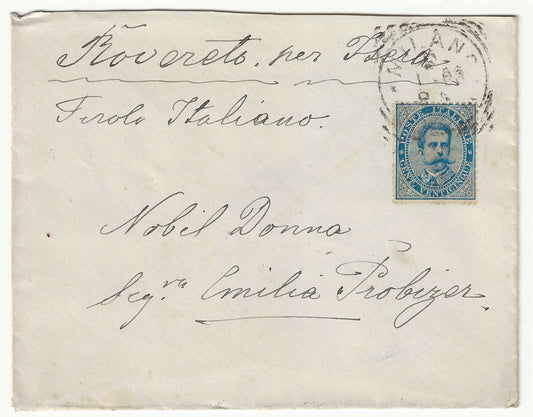 Rovereto per Isera
Tirolo Italiano.
MILANO
POSTE ITALIANE
CENT. VENTICINQUE
Nobil Donna
Seg.ra Emilia Probizer.